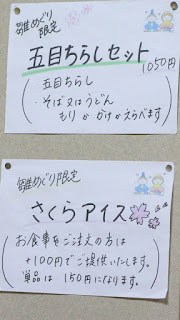 雛めぐり
限定
五目ちらしセット
1050円
五目ちらし
・そば又はうどん
もり か かけ がえらべます
雛めぐり限定
さくらアイス
お食事をご注文の方は
+100円でご提供いたします。
単品は 150円になります。